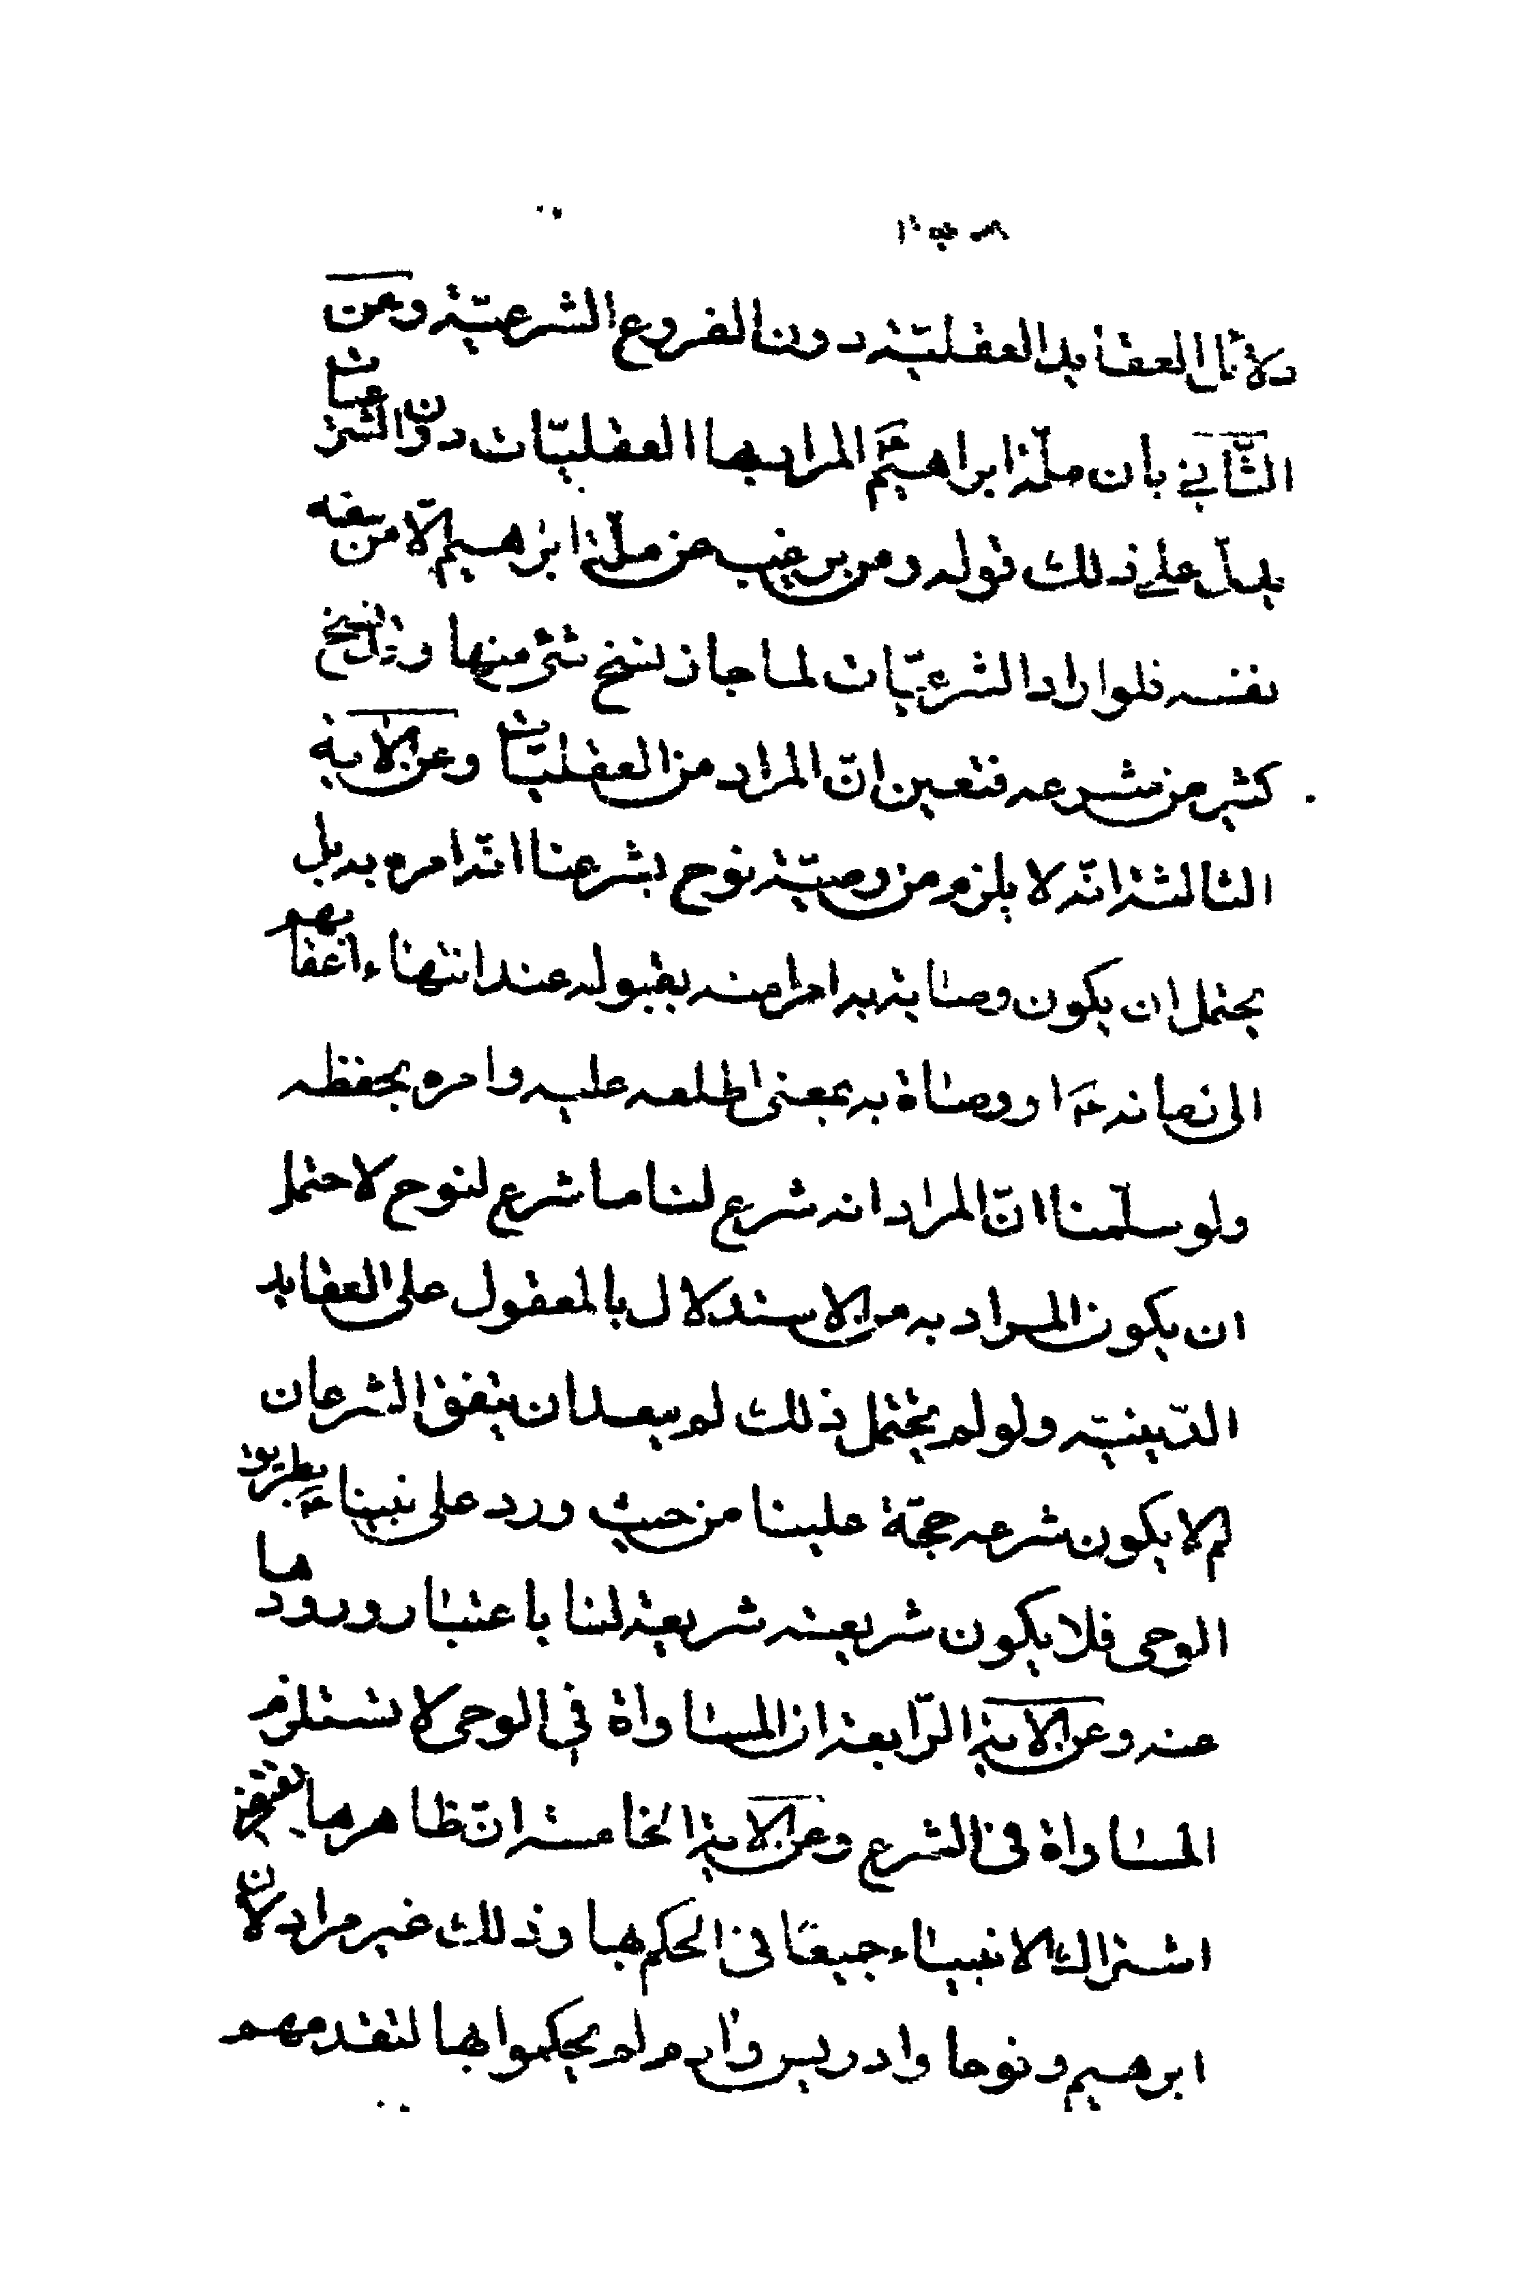 دلائل العقايد العقليّة دون الفروع الشرعيّة وعن
الثّاني بان ملّة ابراهيم ع المراد بها العقليّات دون الشرعيات
يدلّ على ذلك قوله ومن يرغب عن ملّة ابرهيم الّا من سفه
نفسه فلو اراد الشرعيّات لما جاز نسخ شئ منها وقد نسخ
كثير من شرعه فتعين انّ المراد من العقليّات وعن الاية
الثالثة انّه لا يلزم من وصيّة نوح بشرعنا انّه امره به بل
يحتمل ان يكون وصاية به امرا منه بقبوله عند انتهاء اعقابهم
الى زمانه ع او وصاة به بمعنى اطلعه عليه وامره بحفظه
ولو سلّمنا انّ المراد انه شرع لنا ما شرع لنوح لاحتمل
ان يكون المراد به من الاستدلال بالمعقول على العقايد
الدّينيّة ولو لم يحتمل ذلك لم يبعد ان يتفق الشرعان
ثم لا يكون شرعه حجّة علينا من حيث ورد على نبينا ع بطريق
الوحى فلا يكون شريعته شريعة لنا باعتبار ورودها
عنه وعن الاية الرّابعة ان المساواة في الوحى لا تستلزم
المساواة فى الشرع وعن الاية الخامسة انّ ظاهرها يقتضى
اشتراك الانبياء جميعًا فى الحكم بها وذلك غير مراد لان
ابرهيم ونوحا وادريس وادم لم يحكموا بها لتقدمهم